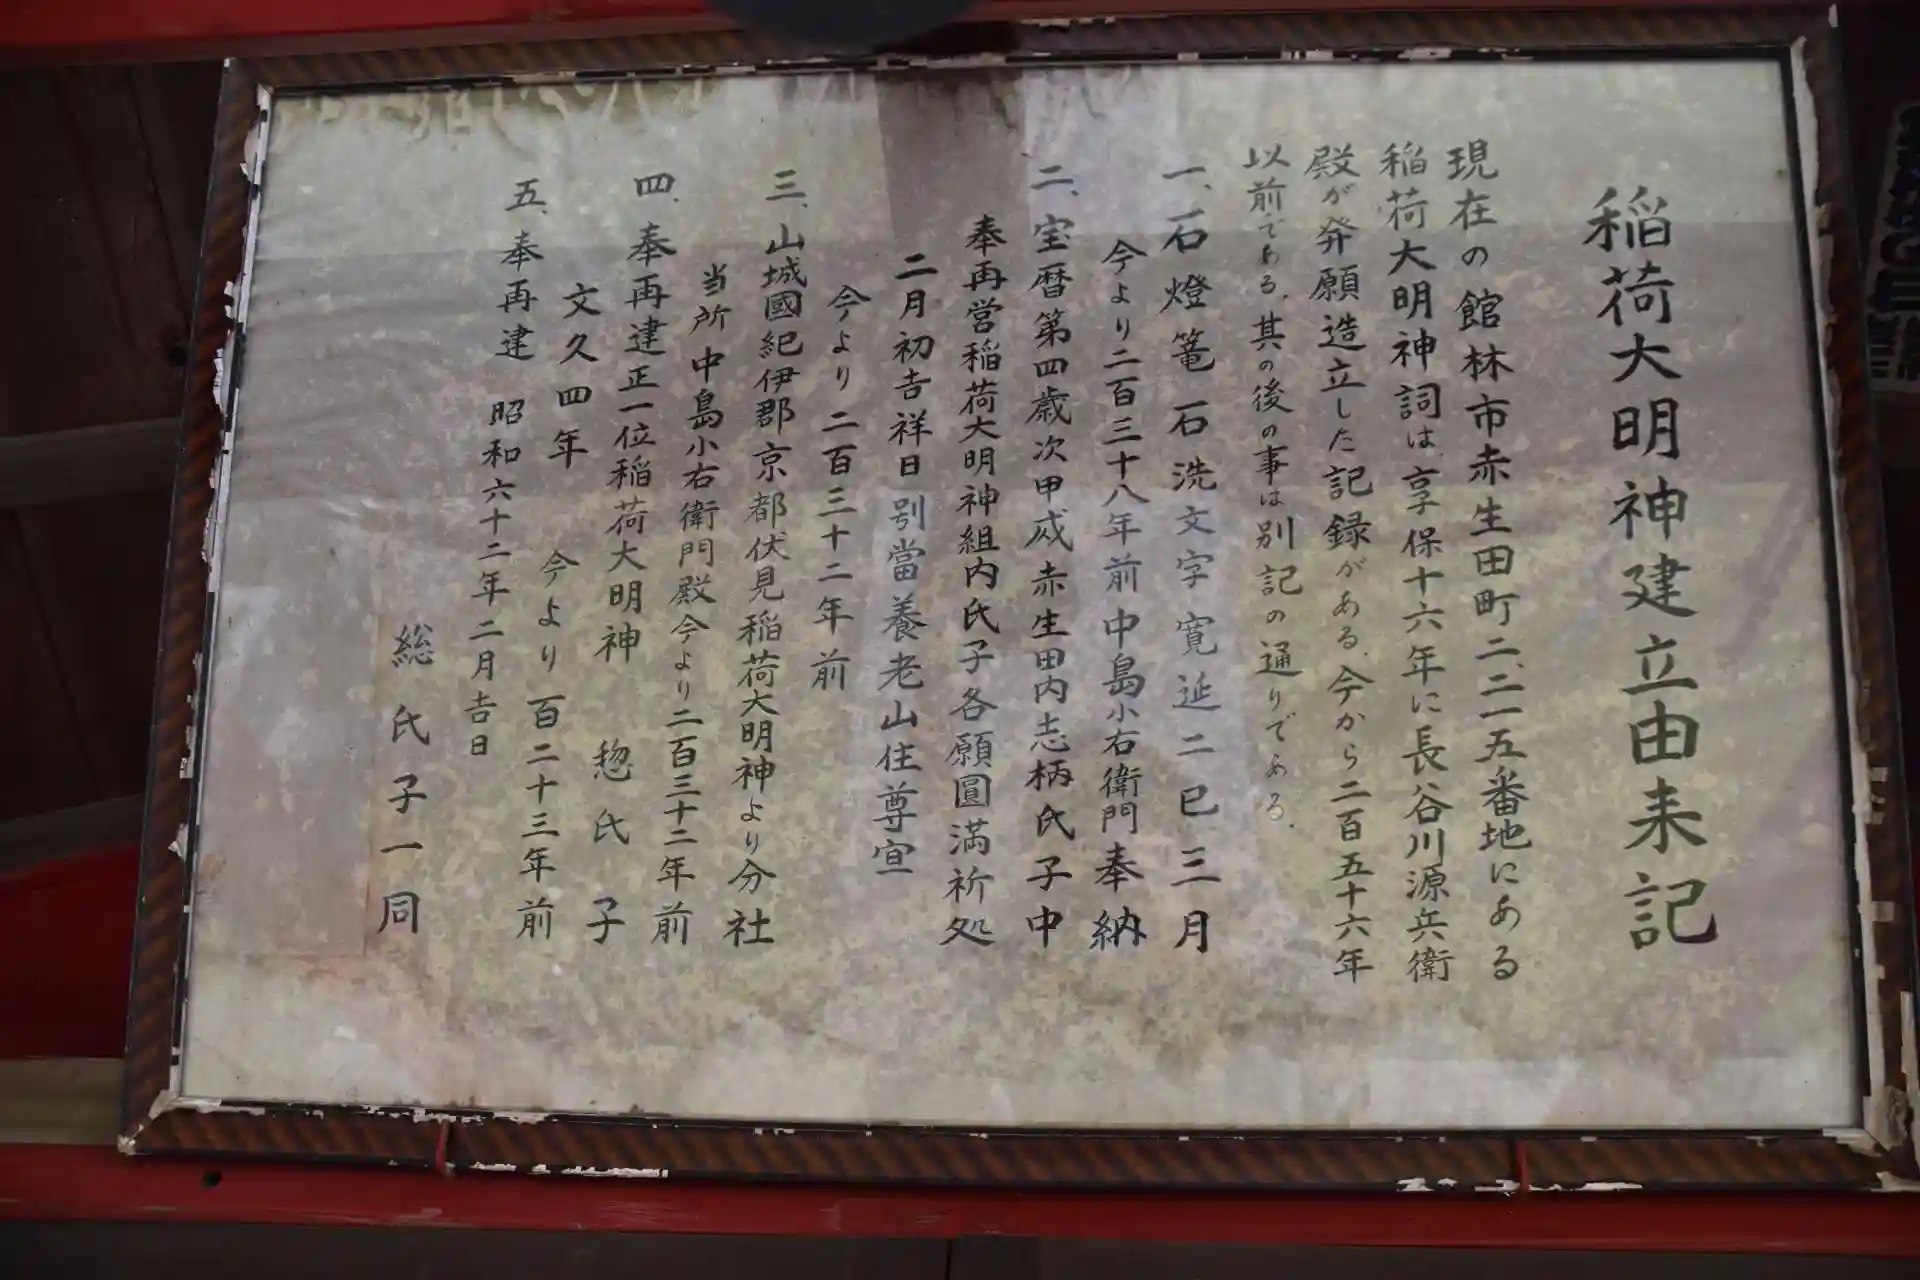 稲荷大明神建立由来記
現在の館林市赤生田町二、二一五番地にある
稲荷大明神詞は享保十六年に長谷川源兵衛
殿が発願造立した記録がある、今から二百五十六年
以前である、其の後の事は別記の通りである、
一、石燈篭石洗文字寛延二巳三月
今より二百三十八年前中島小右衛門奉納
二、宝暦第四歳次甲戌赤生田内志柄氏子中
奉再営稲荷大明神組内氏子各願圓満祈処
二月初吉祥日別當養老山住尊宣
今より二百三十二年前
三、山城國紀伊郡京都伏見稲荷大明神より分社
当所中島小右衛門殿今より二百三十二年前
四、奉再建正一位稲荷大明神 惣氏子
文久四年 今より百二十三年前
五、奉再建 昭和六十二年二月吉日
総氏子一同